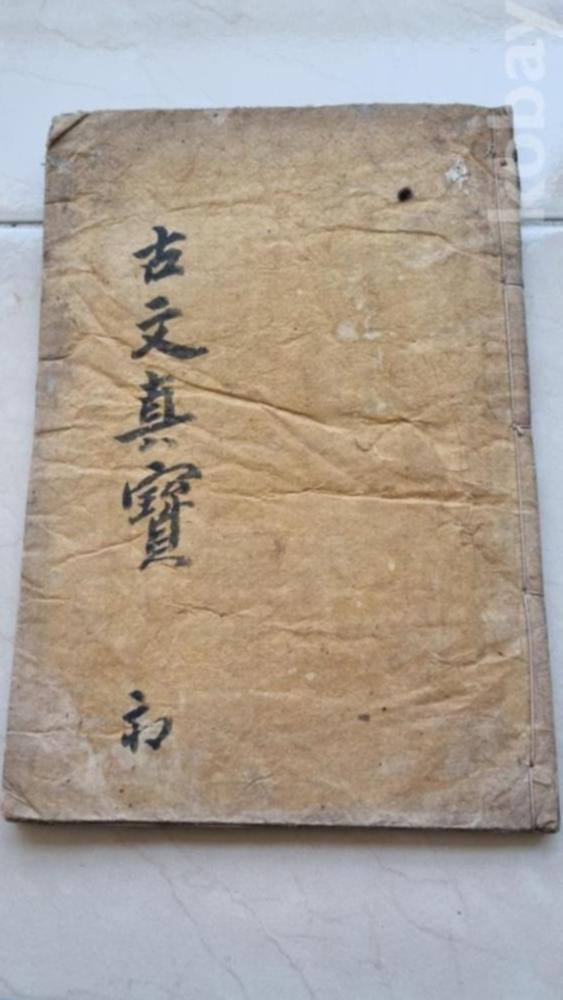 古文真寶
初
kobay